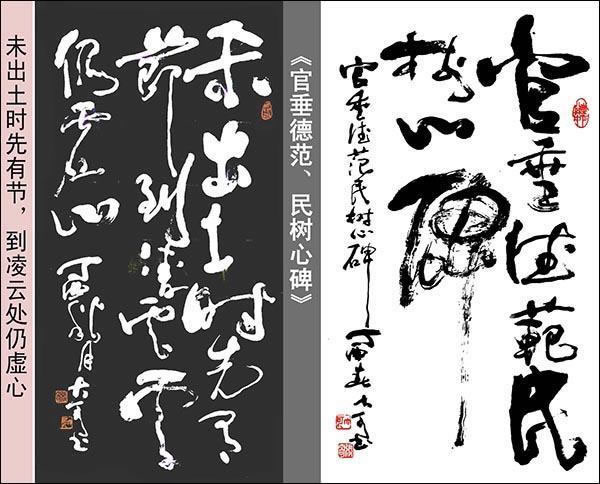 未出土时先有节，到凌云处仍虚心
未出土时先有
節到凌雲處
仍虚心
丁酉秋月
《官垂德范、民树心碑》
官垂德範民
树心碑
官垂德范民树心碑
丁酉春